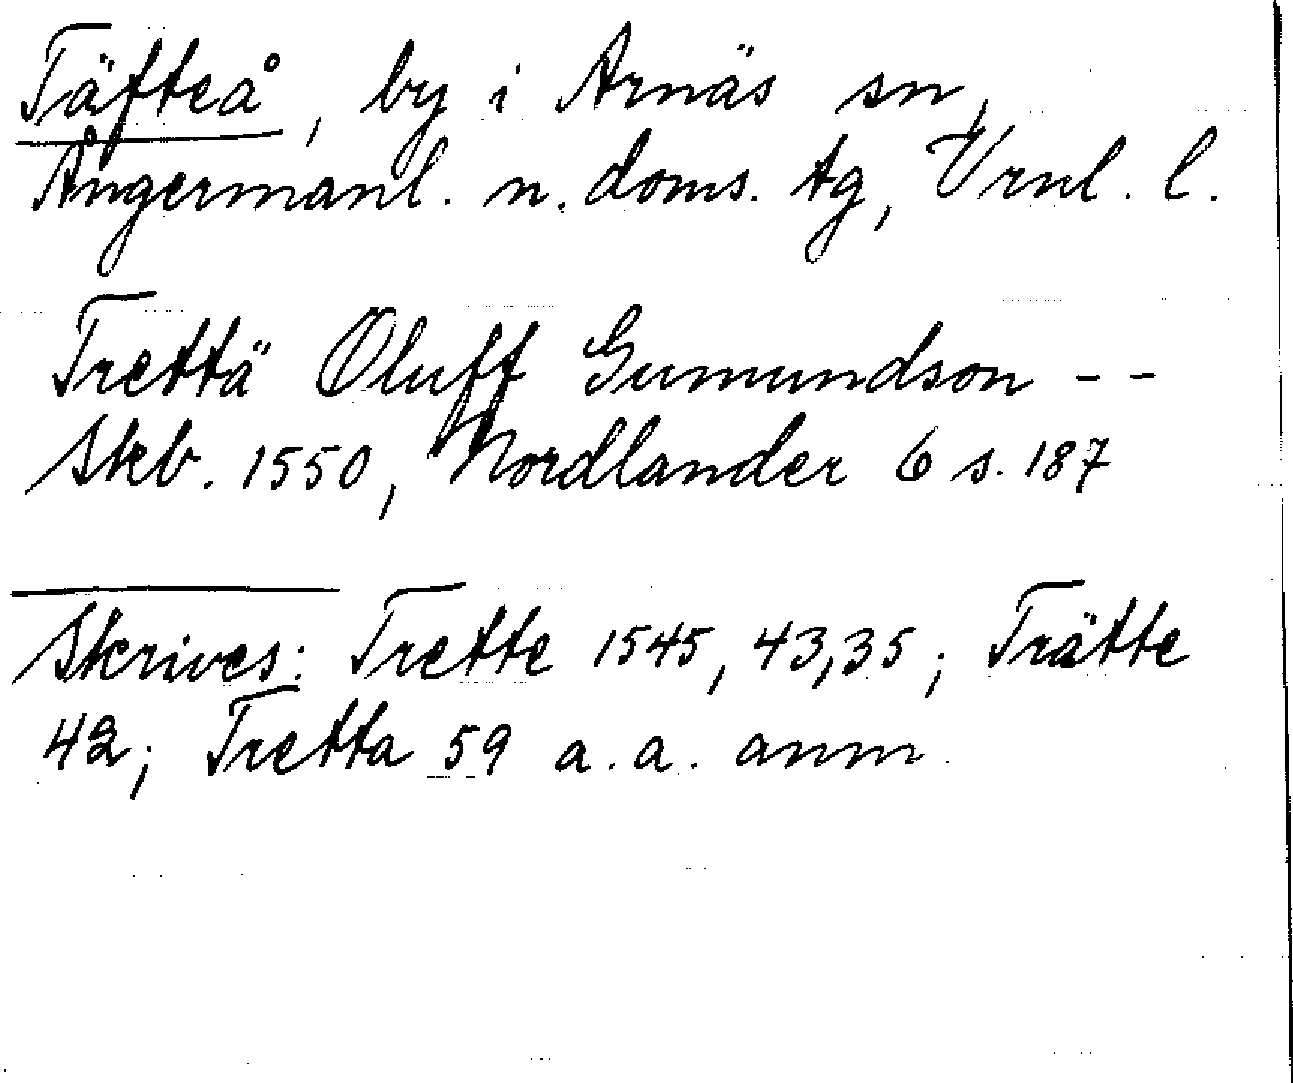 Täfteå, by i Arnäs sn,
Ångermanl. n. doms. tg, Vrnl. l.
Trettä Oluff Gumundson - -
Skb. 1550, Nordlander 6 s. 187
Skrives: Trette 1545, 43, 35; Trätte
42; Tretta 59 a. a. anm